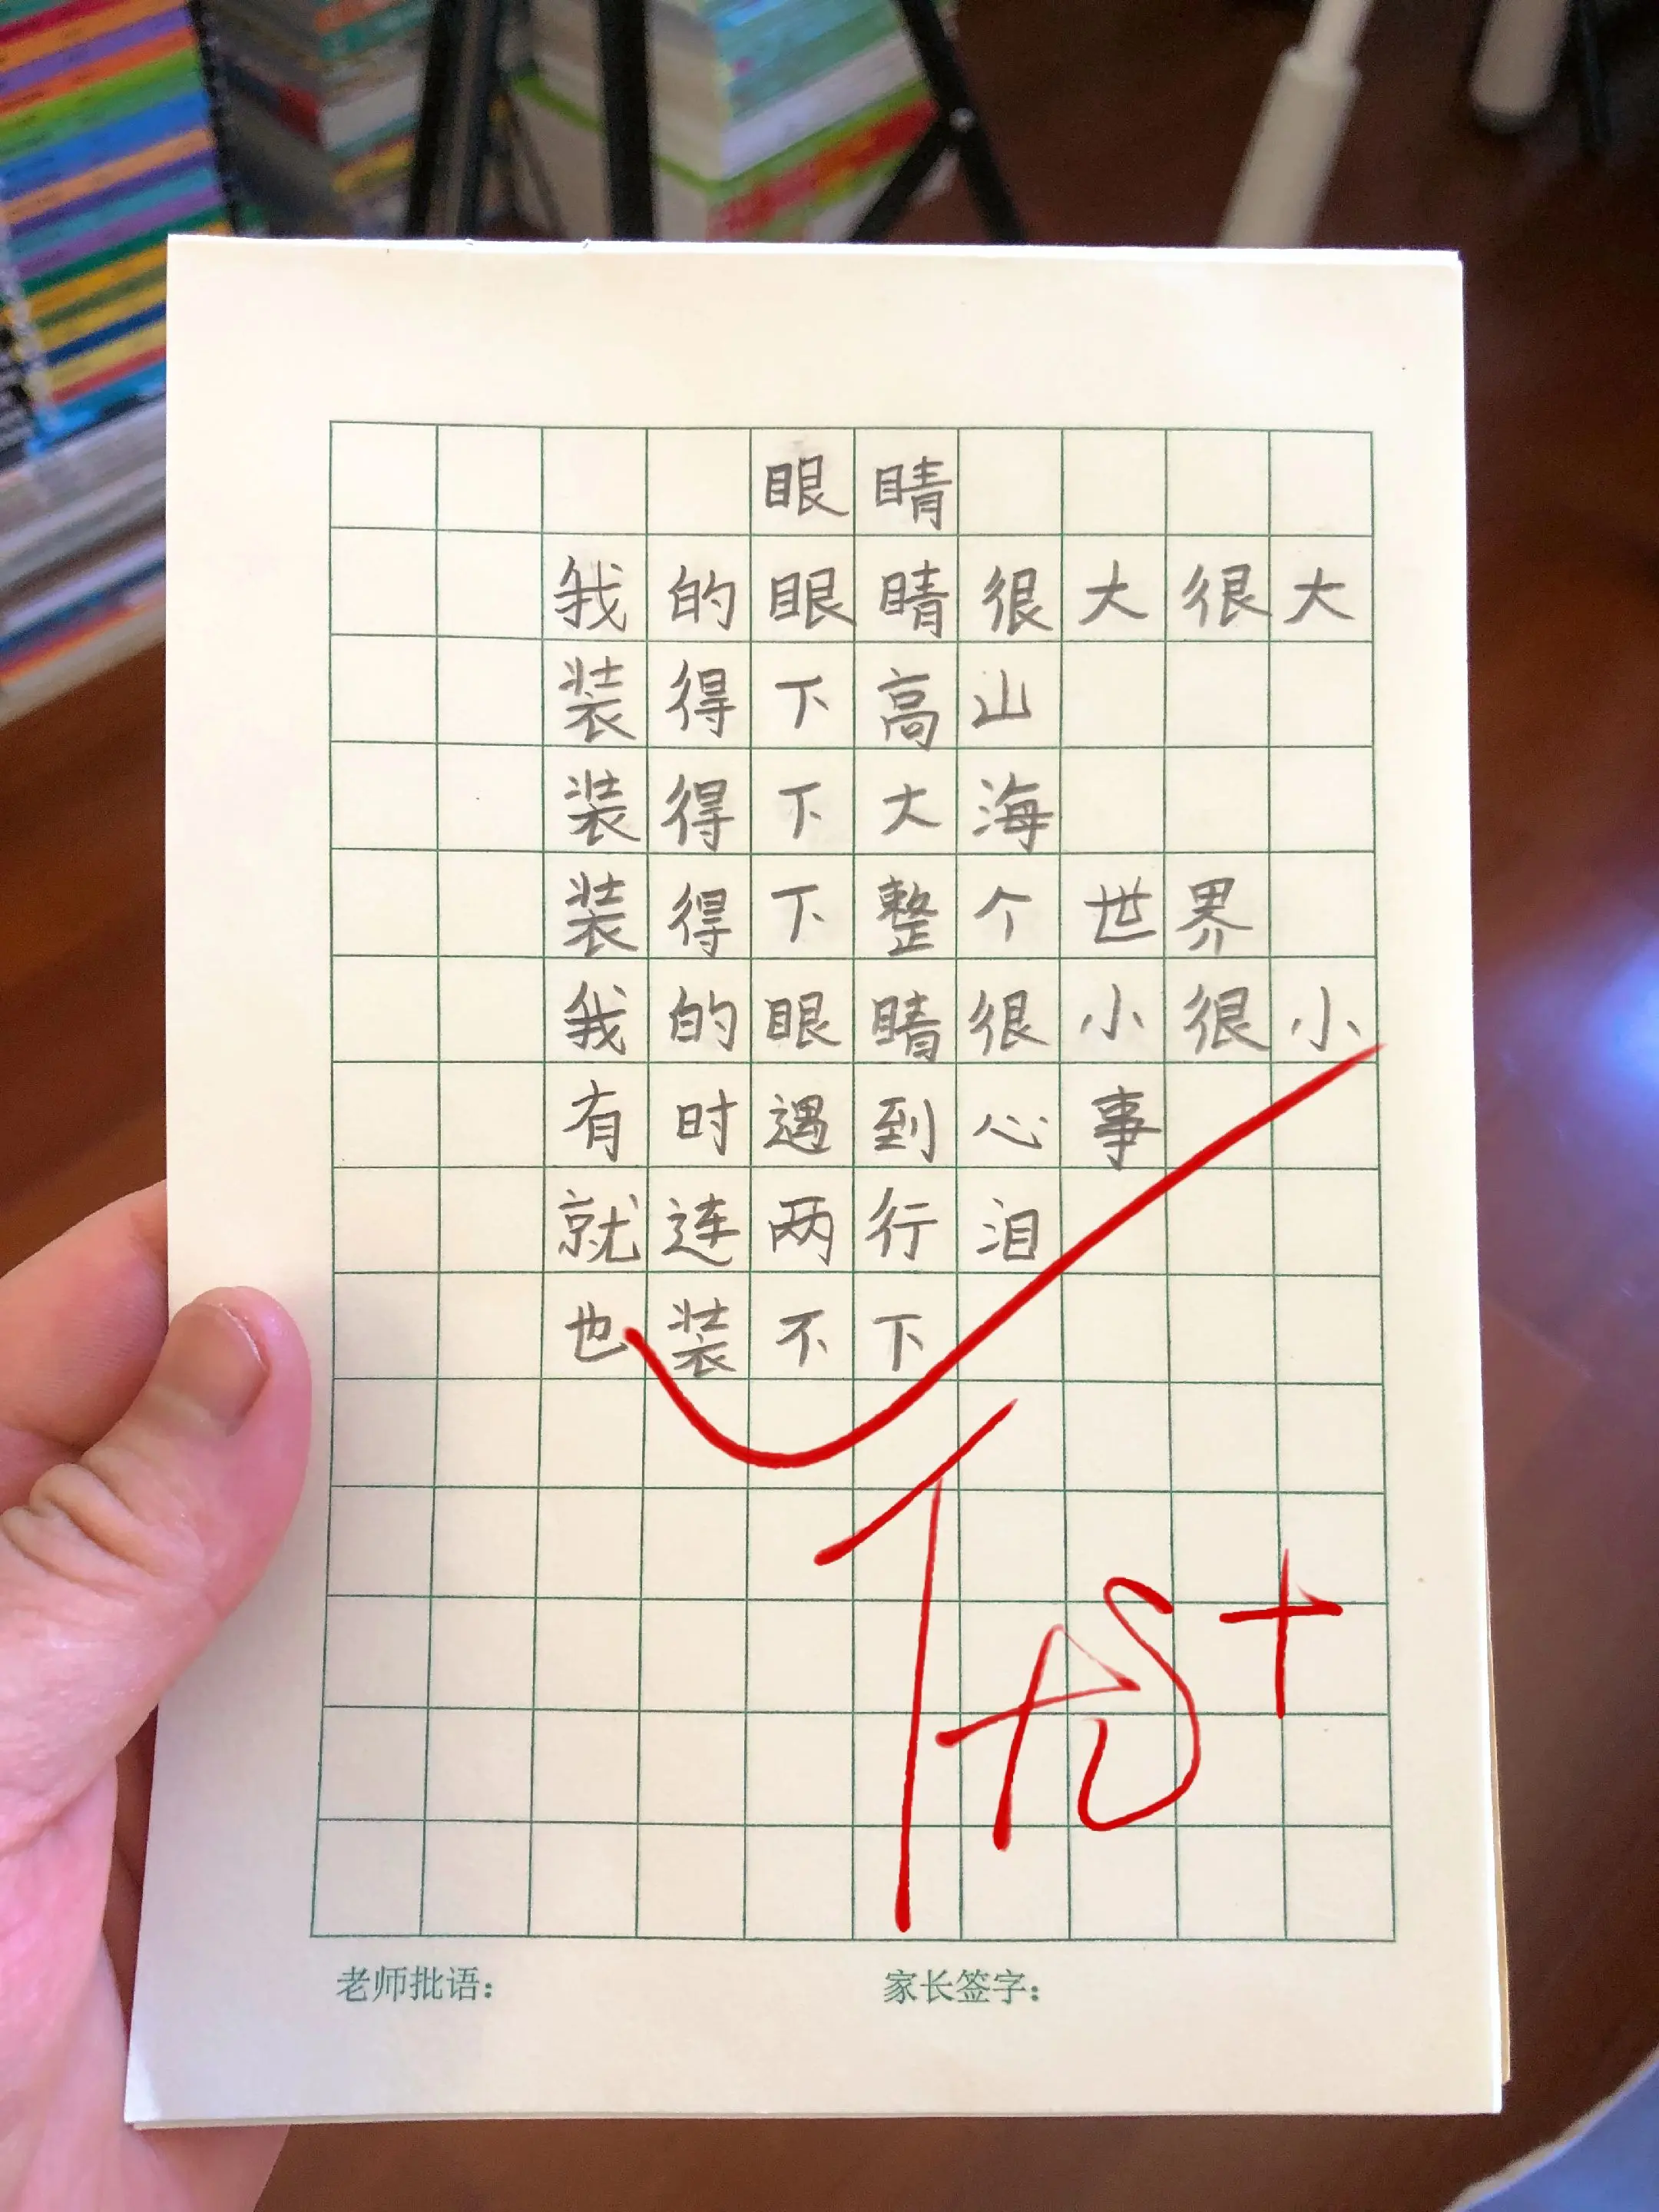 眼睛
我的眼睛很大很大
装得下高山
装得下大海
装得下整个世界
我的眼睛很小很小
有时遇到心事
就连两行泪
也装不下
老师批语：
家长签字：